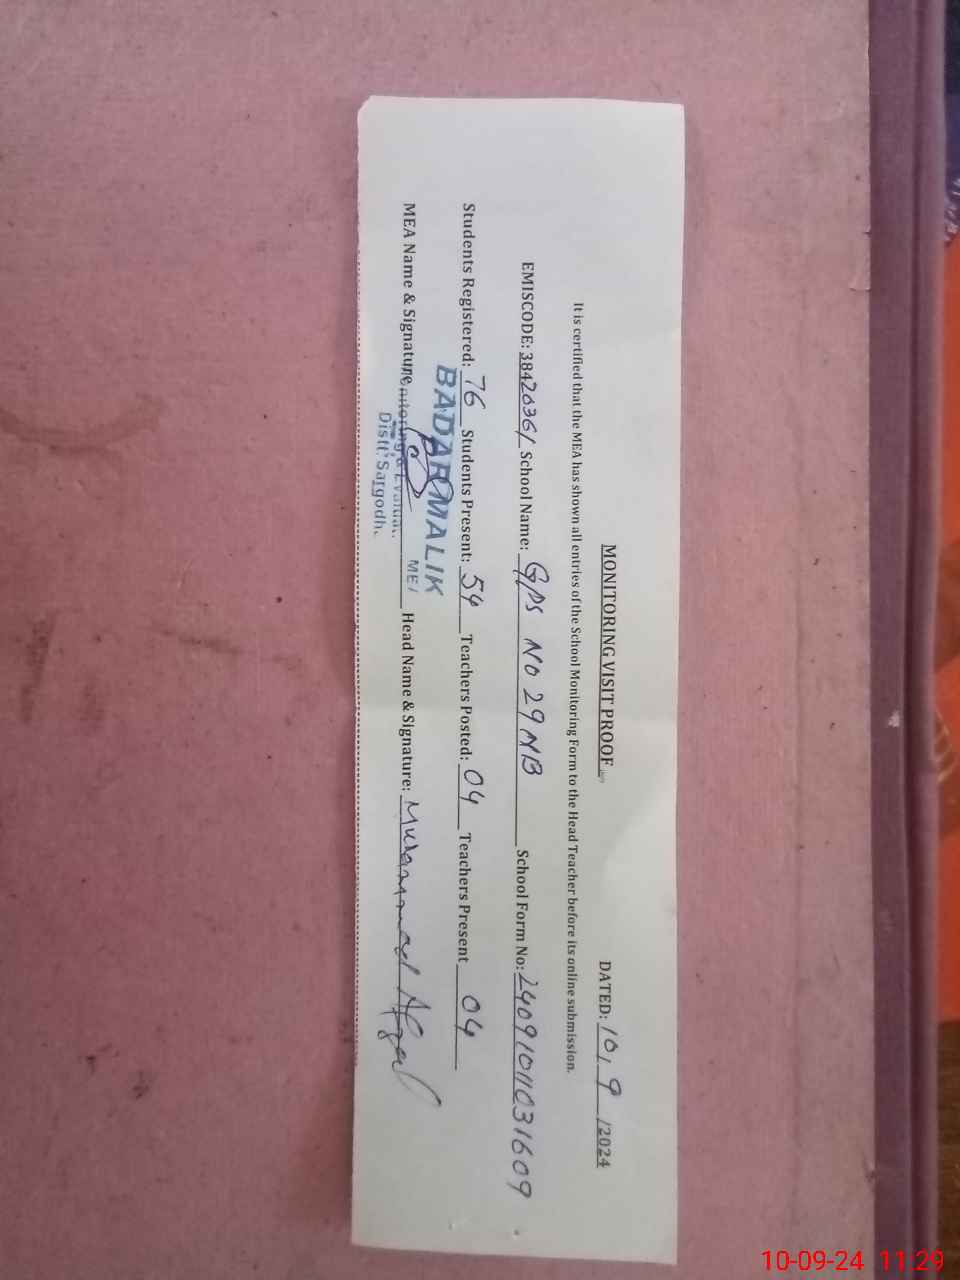 MONITORING VISIT PROOF
DATED: 10, 9 /2024
It is certified that the MEA has shown all entries of the School Monitoring Form to the Head Teacher before its online submission.
EMISCODE: 38420361 School Name: GPS NO 29 NB School Form No: 24091011031609
Students Registered: 76 Students Present: 54 Teachers Posted: 04 Teachers Present 04
BADAR MALIK
MEA Name & Signature Head Name & Signature: Muhammad Afzal
Distt: Sargodh.
10-09-24 11:29